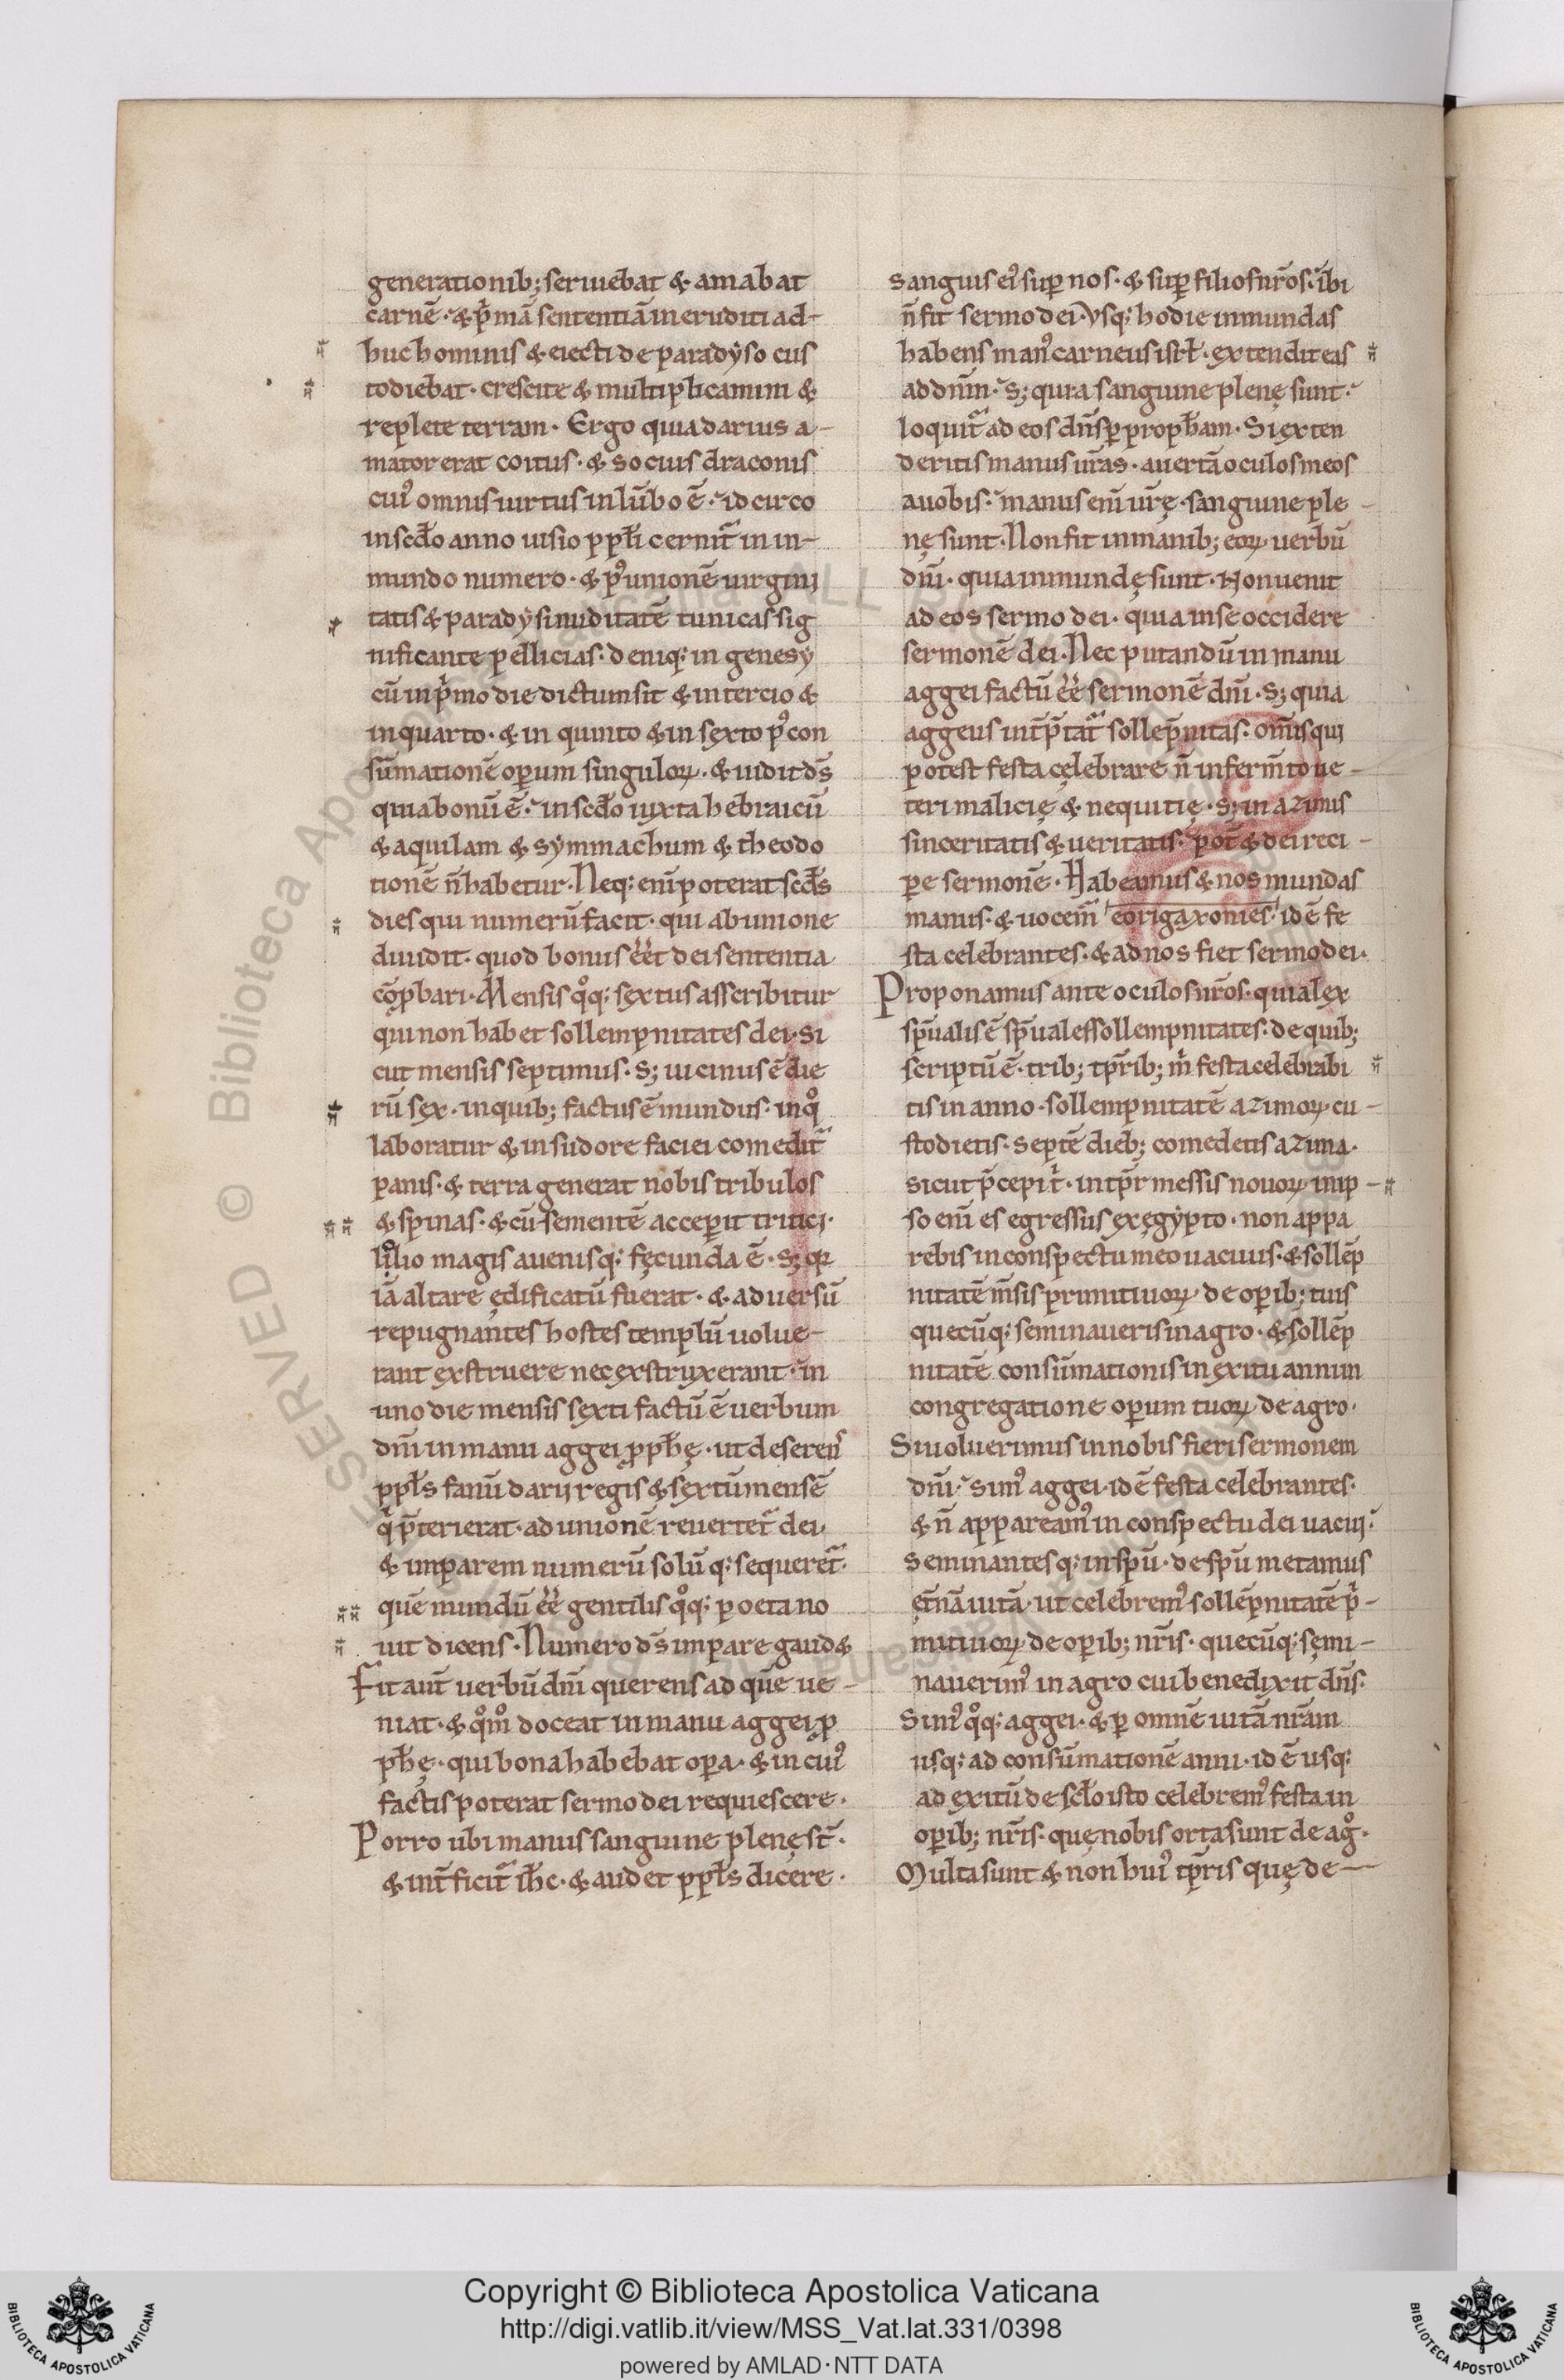 generationib; seruiebat & amabat
carnē. & p̍mā sententiā ineruditi ad-
huc hominis & eiecti de paradẏso cus
todiebat. crescite & multiplicamini &
replete terram. Ergo quia darius a-
mator erat coitus. & socius draconis
cui᷒ omnis uirtus in lūbo ē. idcirco
in scd̄o anno uisio ꝓph̄i cernit᷑ in in-
mundo numero. & p᷒ unionē uirgini
tatis & paradẏsi nuditatē tunicas sig
nificante pellicias. deniq; in genesẏ
cū in p̍mo die dictum sit & in tercio &
in quarto. & in quinto & in sexto p᷒ con
sūmationē operum singuloꝝ. & uidit d̄s
quia bonū ē. in scd̄o iuxta hebraicū
& aquilam & sẏmmachum & theodo
tionē n̄ habetur. Neq; eni̅ poterat scd̄s
dies qui numerū facit. qui ab unione
diuidit. quod bonus eēt dei sententia
cōꝓbari. Mensis qͦq; sextus asscribitur
qui non habet sollempnitates dei. si
cut mensis septimus. s; uicinus ē die
rū sex. in quib; factus ē mundus. in qͦ
laboratur & in sudore faciei comedit᷑
panis. & terra generat nobis tribulos
& spinas. & cū sementē acceperit tritici.
lolio magis auenisq; fęcunda ē. s; qꝛ
iā altare ędificatū fuerat. & aduersū
repugnantes hostes templū uolue-
rant exstruere nec exstruxerant. in
uno die mensis sexti factū ē uerbum
dn̄i in manu aggei ꝓph̄ę. ut deserens
ppl̄s fanū darii regis & sextū mensē
q̍ p̄terierat. ad unionē reuertet᷑ dei.
& imparem numerū solūq; sequeret᷑.
quē mundū eē gentilis qͦq; poeta no
uit dicens. Numero d̄s impare gaud&
Fit aut̄ uerbū dn̄i querens ad quē ue-
niat. & qͦm̊ doceat in manu aggei ꝓ
ph̄ę. qui bona habebat opera. & in cui᷒
factis poterat sermo dei requiescere.
Porro ubi manus sanguine plenę st̄.
& int̄ficit᷑ ih̄c. & audet ppl̄s dicere.
sanguis ei᷒ super nos. & super filios nr̄os. ibi
n̄ fit sermo dei. Vsq; hodie inmundas
habens man᷒ carneus isrl̄. extendit eas
ad dn̄m. s; quia sanguine plenę sunt.
loquit᷑ ad eos dn̄s per proph̄am. Si exten
deritis manus ur̄as. auertā oculos meos
a uobis. manus eni̅ ur̄ę. sanguine ple-
nę sunt. Non fit in manib; eoꝝ uerbū
dn̄i. quia inmundę sunt. Non uenit
ad eos sermo dei. quia in se occidere
sermonē dei. Nec putandū in manu
aggei factū eē sermonē dn̄i. s; quia
aggeus int̄p̄tat᷑ sollēpnitas. om̄is qui
potest festa celebrare n̄ in ferm̄to ue-
teri malicię & nequitię. s; in azimis
sinceritatis & ueritatis. pot̄ & dei reci-
pere sermonē. Habeamus & nos mundas
manus. & uocem᷑ eorigaxonies. id ē fe
sta celebrantes. & ad nos fiet sermo dei.
Proponamus ante oculos nr̄os. quia lex
sp̄ualis ē sp̄uales sollempnitates. de quib;
scriptū ē. trib; tp̄rib; m̍ festa celebrabi
tis in anno. sollempnitatē azimoꝝ cu-
stodietis. septē dieb; comedetis azima.
sicut p̄cepi t̍. in tp̄r messis nouoꝝ in ip-
so eni̅ es egressus ex ęgẏpto. non appa
rebis in conspectu meo uacuus. & sollēp
nitatē m̄sis primitiuoꝝ de operib; tuis
quecūq; seminaueris in agro. & sollēp
nitatē consūmationis in exitu anni in
congregatione operum tuoꝝ de agro.
Si uoluerimus in nobis fieri sermonem
dn̄i. sim᷒ aggei. id ē festa celebrantes.
& n̄ appaream᷒ in conspectu dei uacui.
seminantesq; in sp̄u. de sp̄u metamus
et̄nā uitā. ut celebrem᷒ sollēpnitatē p̍-
mitiuoꝝ de operib; nr̄is. quecūq; semi-
nauerim᷒ in agro cui benedixit dn̄s.
Sim᷒ qͦq; aggei. & per omnē uitā nr̄am
usq; ad consūmationē anni. id ē usq;
ad exitū de scl̄o isto celebrem᷒ festa in
operib; nr̄is. quę nobis orta sunt de agͦ.
Multa sunt & non hui᷒ tp̄ris quę de-
Copyright © Biblioteca Apostolica Vaticana
http://digi.vatlib.it/view/MSS_Vat.lat.331/0398
powered by AMLAD·NTT DATA
BIBLIOTECA APOSTOLICA VATICANA
BIBLIOTECA APOSTOLICA VATICANA